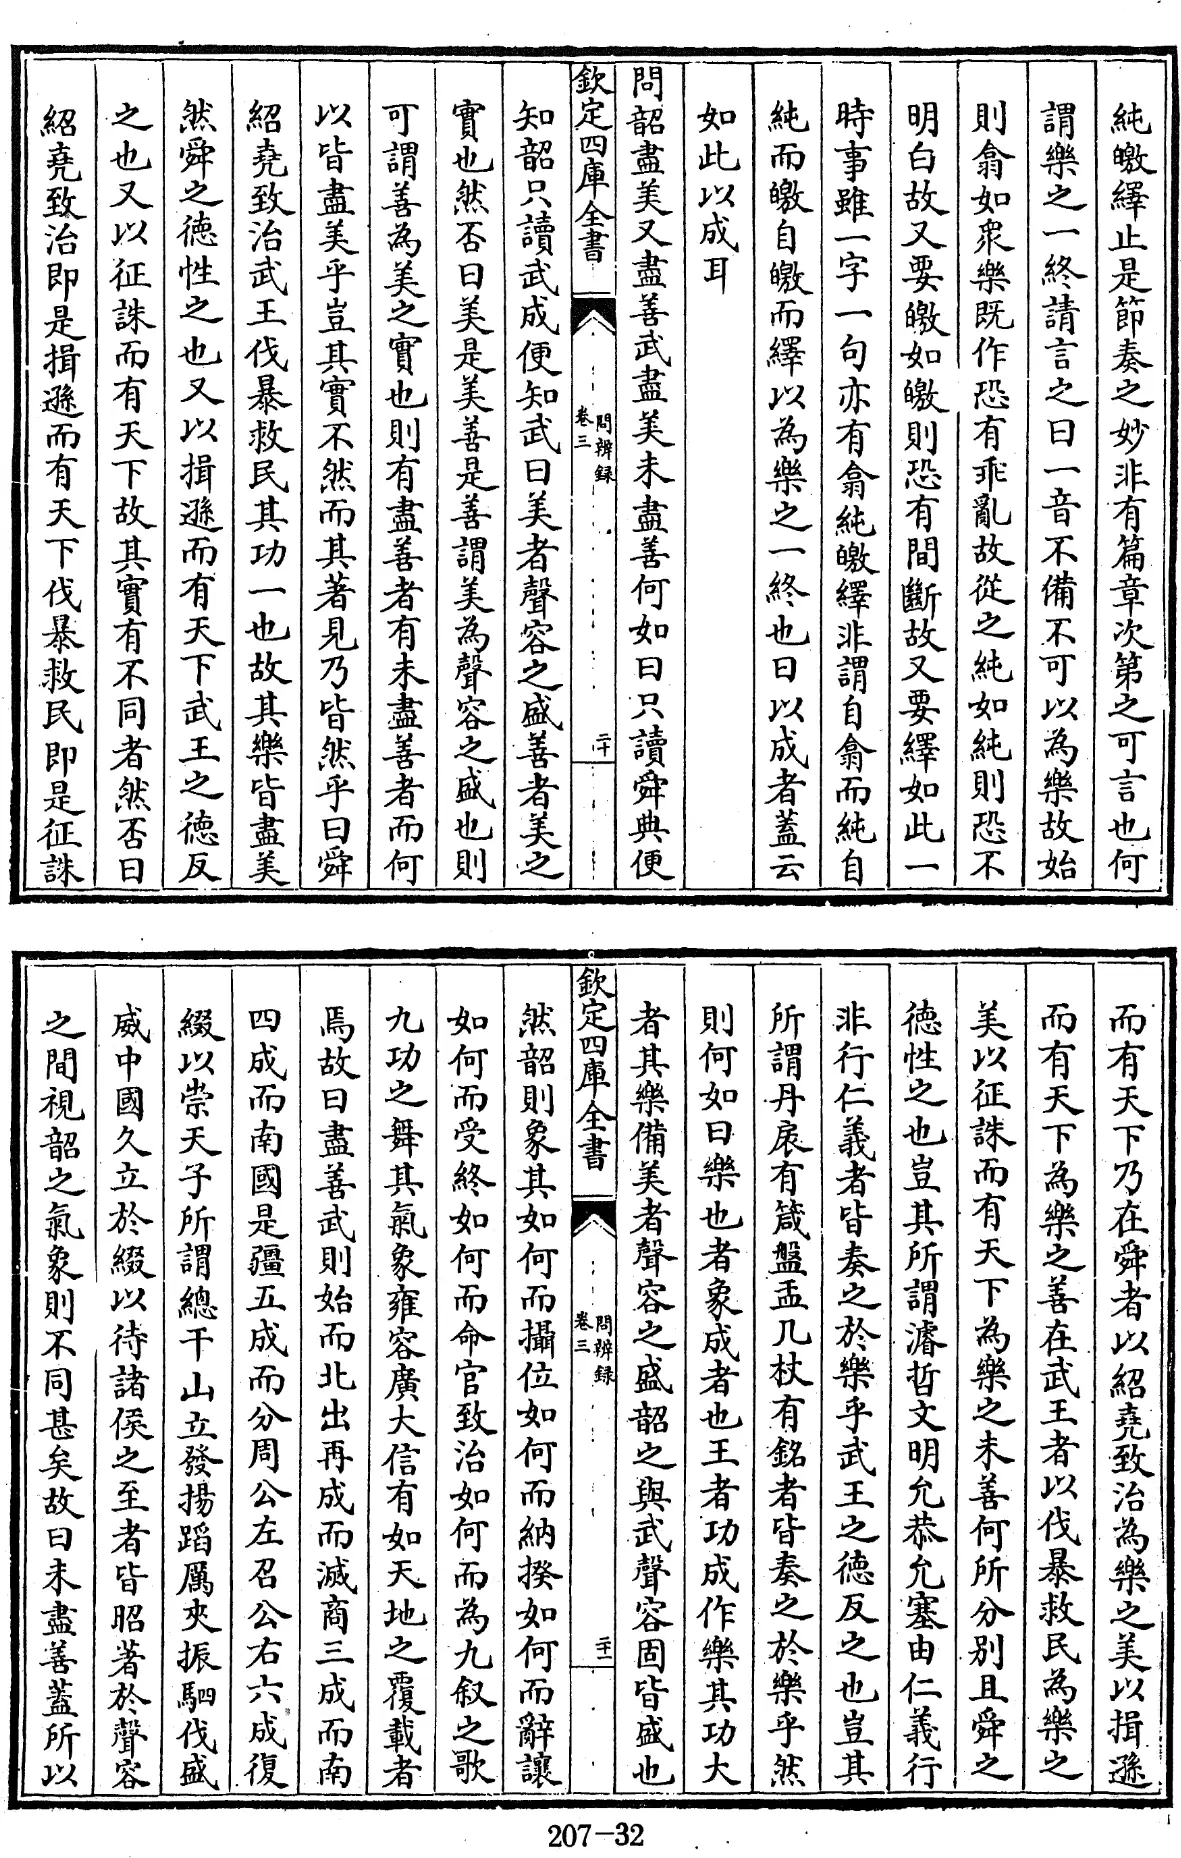 純皦繹止是節奏之妙非有篇章次第之可言也何
謂樂之一終請言之曰一音不備不可以為樂故始
則翕如衆樂既作恐有乖亂故從之純如純則恐不
明白故又要皦如皦則恐有間斷故又要繹如此一
時事雖一字一句亦有翕純皦繹非謂自翕而純自
純而皦自皦而繹以為樂之一終也曰以成者蓋云
如此以成耳
問韶盡美又盡善武盡美未盡善何如曰只讀舜典便
欽定四庫全書
問辨録
卷三
二十
知韶只讀武成便知武曰美者聲容之盛善者美之
實也然否曰美是美善是善謂美為聲容之盛也則
可謂善為美之實也則有盡善者有未盡善者而何
以皆盡美乎豈其實不然而其著見乃皆然乎曰舜
紹堯致治武王伐暴救民其功一也故其樂皆盡美
然舜之徳性之也又以揖遜而有天下武王之徳反
之也又以征誅而有天下故其實有不同者然否曰
紹堯致治即是揖遜而有天下伐暴救民即是征誅
而有天下乃在舜者以紹堯致治為樂之美以揖遜
而有天下為樂之善在武王者以伐暴救民為樂之
美以征誅而有天下為樂之未善何所分别且舜之
徳性之也豈其所謂濬哲文明允恭允塞由仁義行
非行仁義者皆奏之於樂乎武王之徳反之也豈其
所謂丹扆有箴盤盂几杖有銘者皆奏之於樂乎然
則何如曰樂也者象成者也王者功成作樂其功大
者其樂備美者聲容之盛韶之與武聲容固皆盛也
欽定四庫全書
問辨録
卷三
二十一
然韶則象其如何而攝位如何而納揆如何而辭讓
如何而受終如何而命官致治如何而為九叙之歌
九功之舞其氣象雍容廣大信有如天地之覆載者
焉故曰盡善武則始而北出再成而滅商三成而南
四成而南國是疆五成而分周公左召公右六成復
綴以崇天子所謂總干山立發揚蹈厲夾振駟伐盛
威中國久立於綴以待諸侯之至者皆昭著於聲容
之間視韶之氣象則不同甚矣故曰未盡善蓋所以
207-32